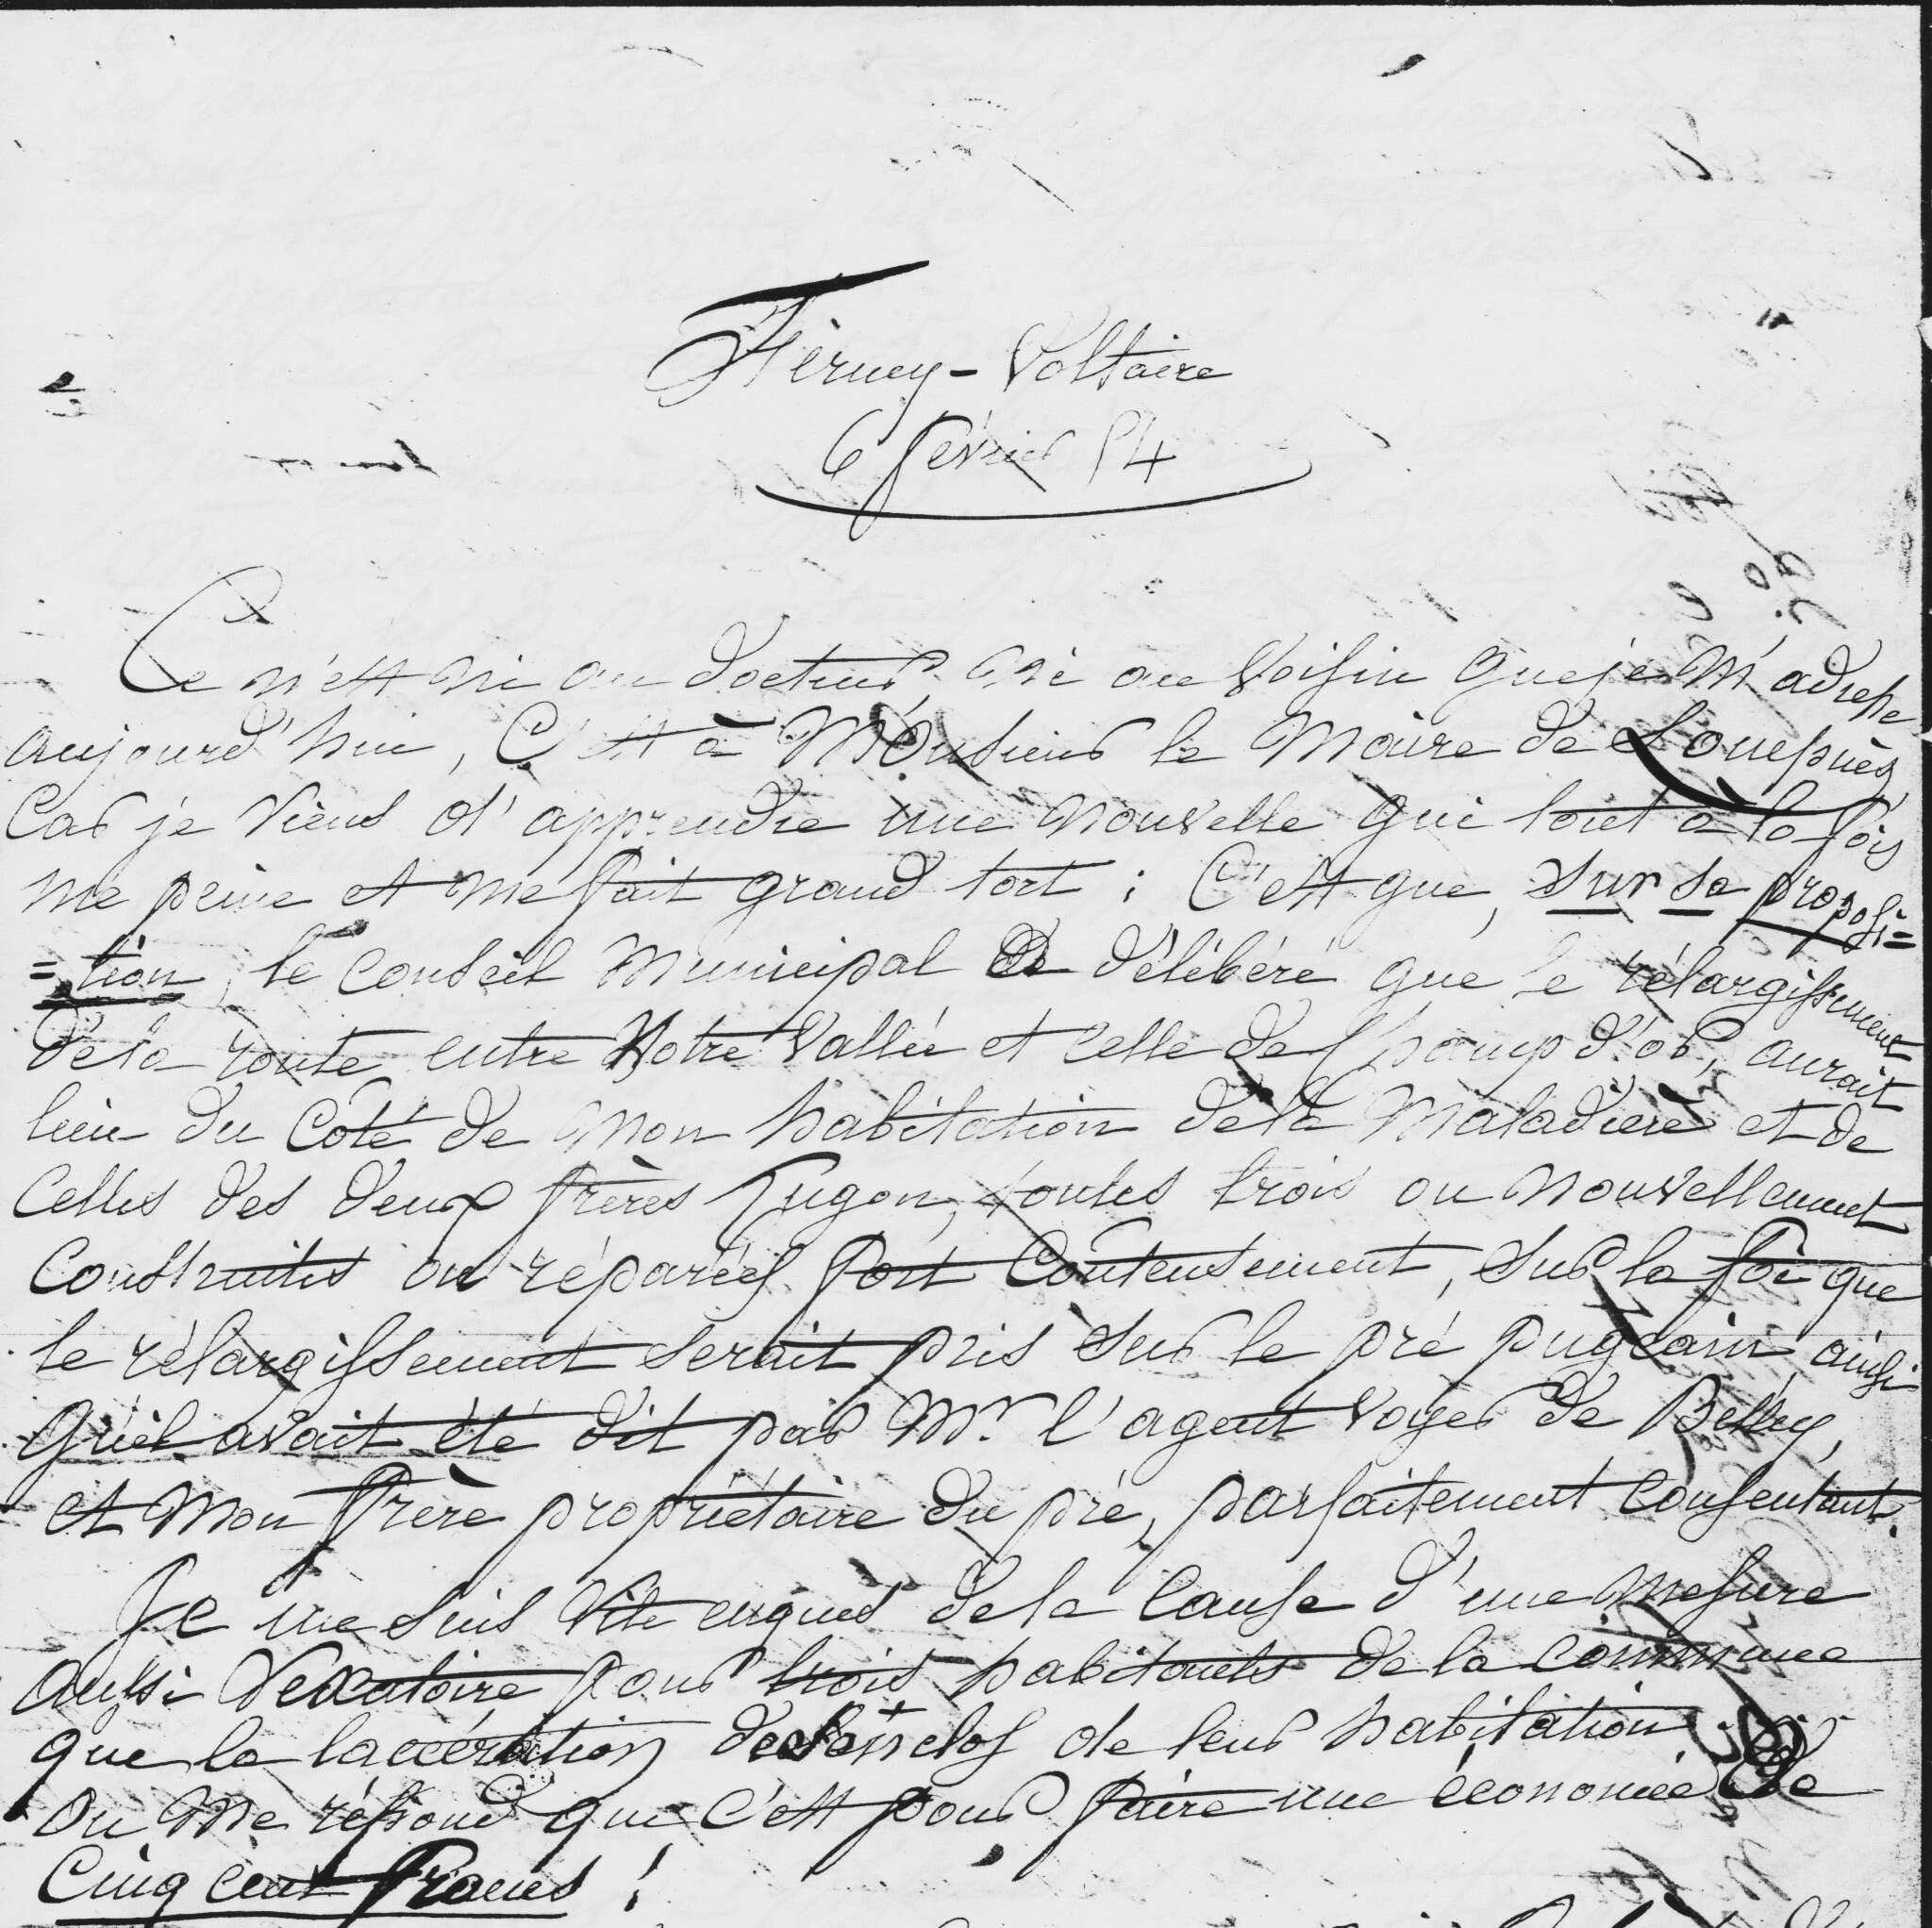 Ferney-Voltaire
6 février 54
Ce n'est ni au docteur, ni au voisin que je m'adresse
aujourd'hui, C'est à Monsieur le Maire de Lompnès,
Car je viens d'apprendre une nouvelle qui tout à la fois
me peine et me fait grand tort : C'est que, sur sa proposi=
=tion, le conseil Municipal a délibéré que le rélargissement
de la route entre Notre vallée et celle de Champ d'or, aurait
lieu du Coté de mon habitation de la Maladière et de
Celles des deux frères Lugon, toutes trois ou nouvellement
Construites ou réparées fort Coûteusement, sur la foi que
le rélargissement serait pris sur le pré pugeain, ainsi
qu'il avait été dit par Mr. l'agent voyer de Belley,
et Mon frère propriétaire du pré, parfaitement consentant.
Je me suis vite enquis de la cause d'une mesure
aussi vexatoire pour trois habitants de la commune
que la lacération de l'enclos de leur habitation
On me répond que c'est pour faire une économie de
Cinq cent francs !